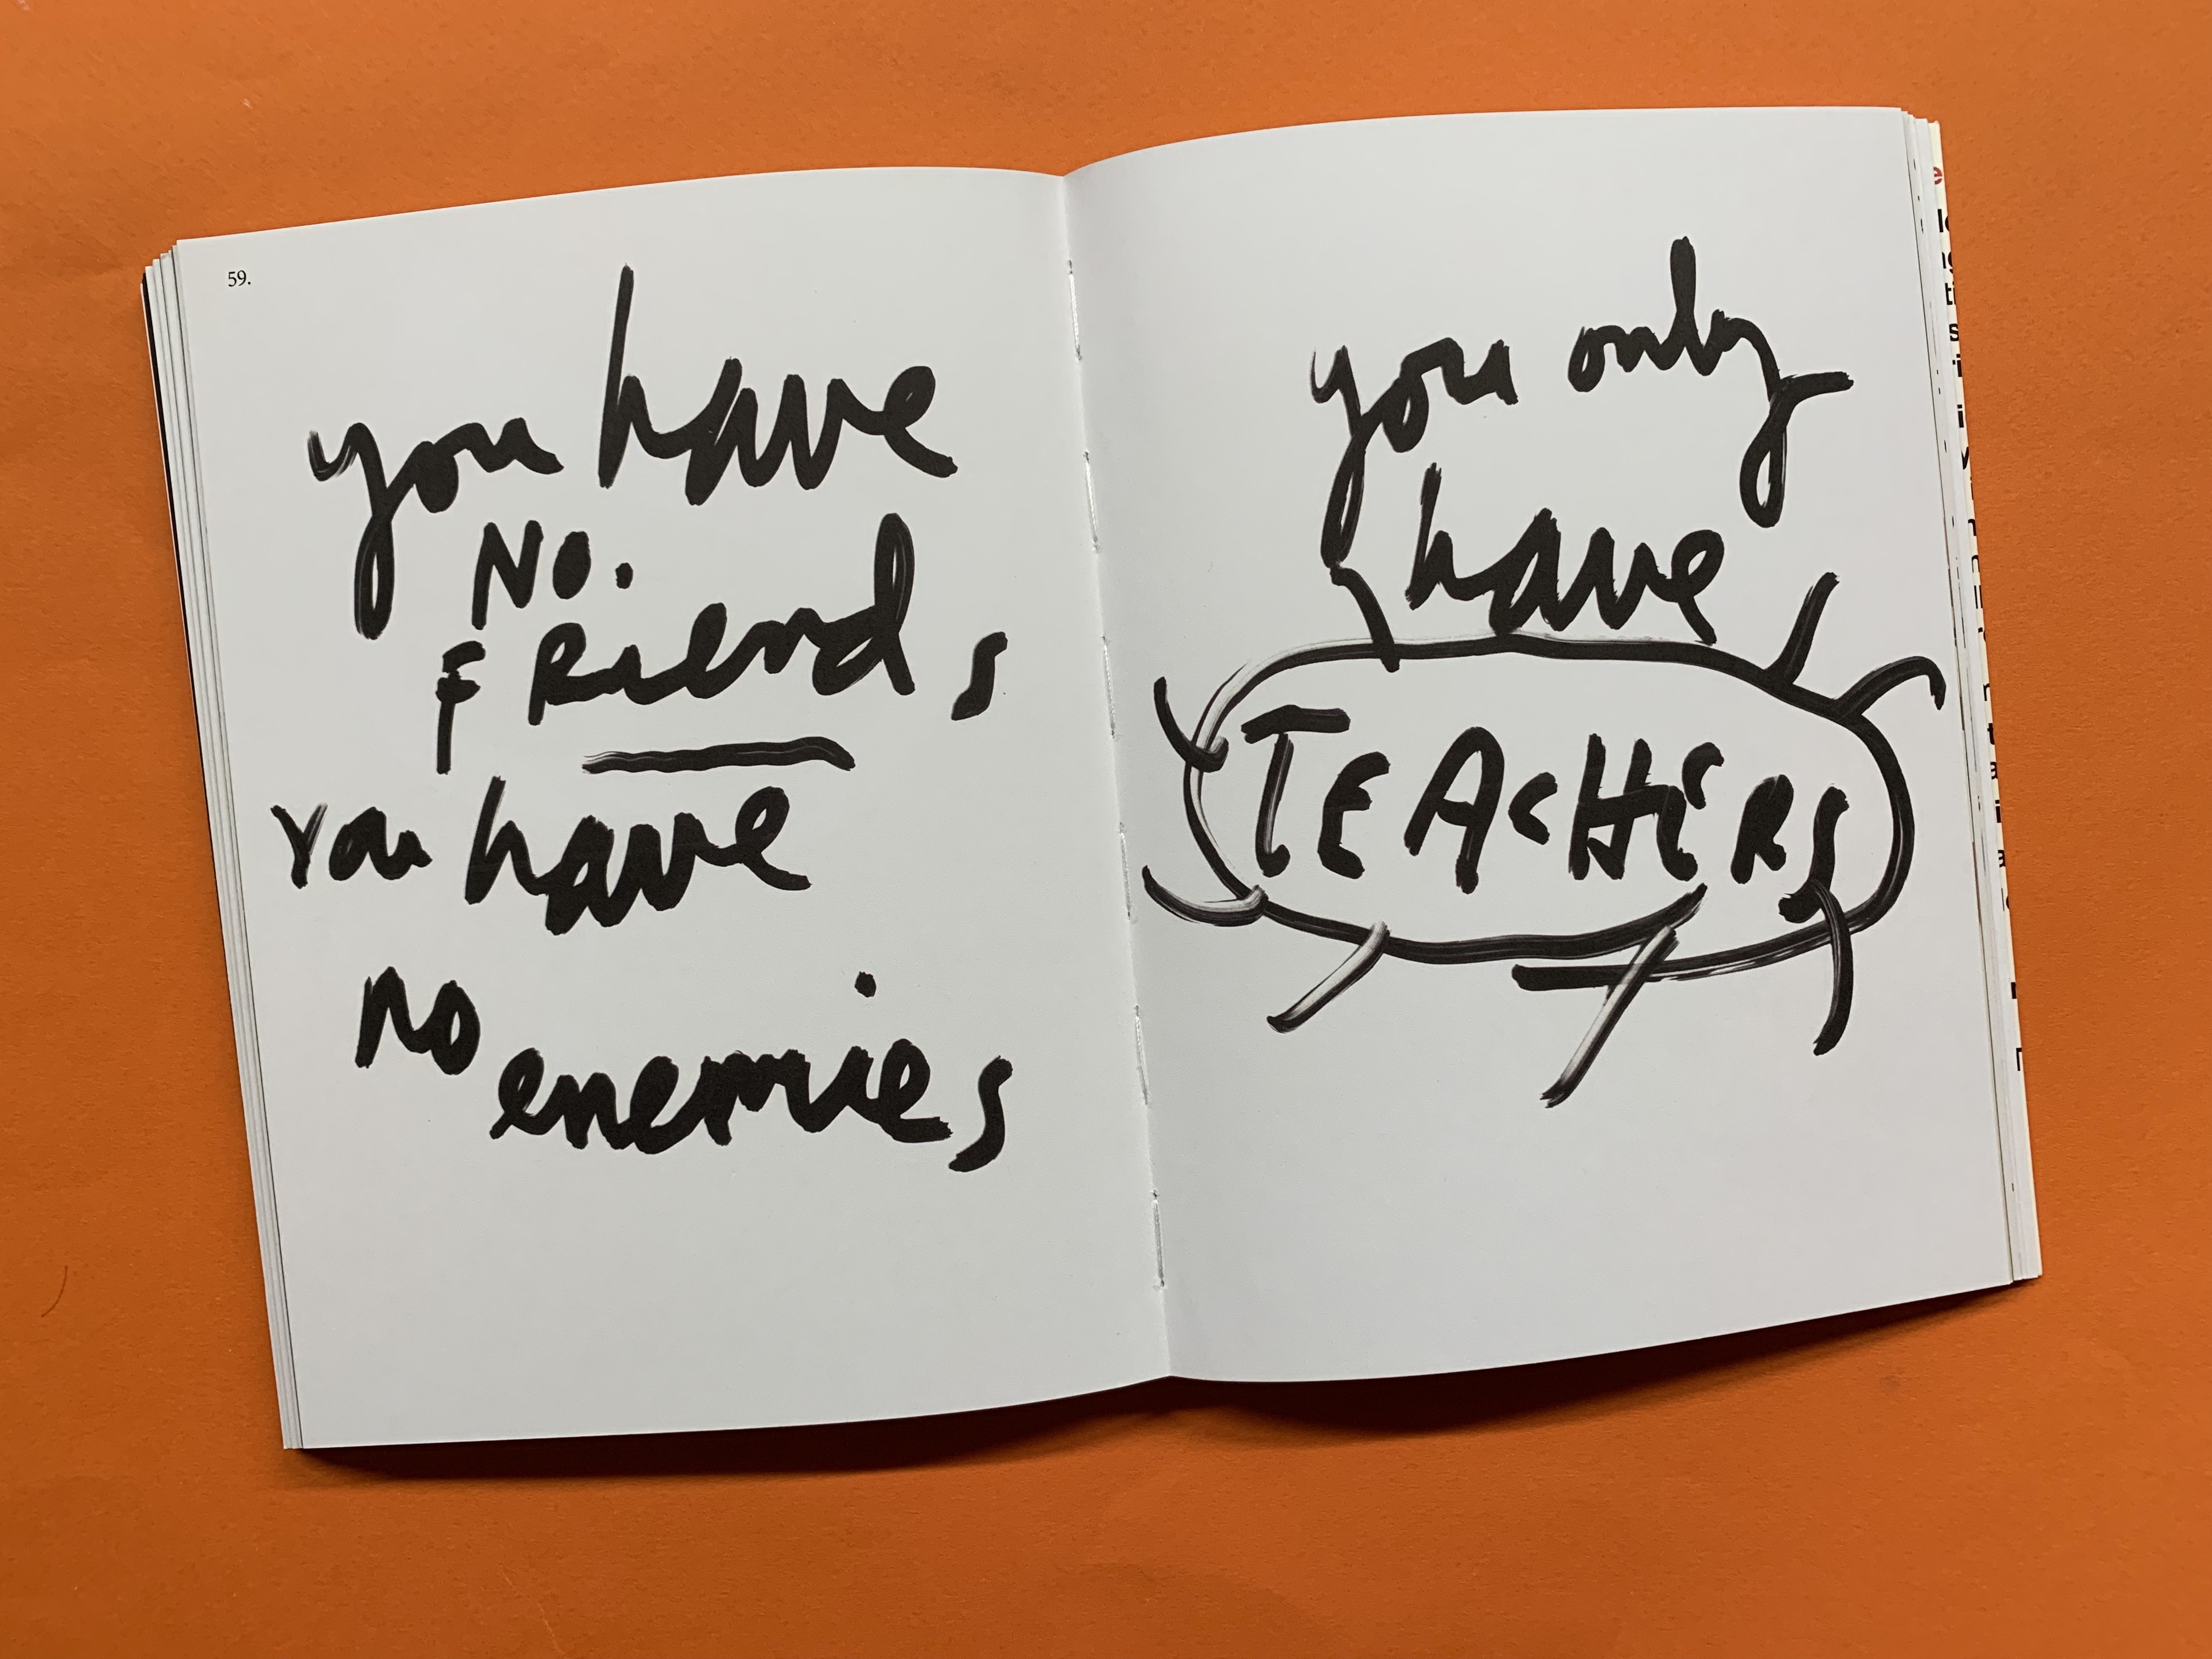 59.
you have
No.
fRiends
You have
no
enemies
you only
have
TEACHERS